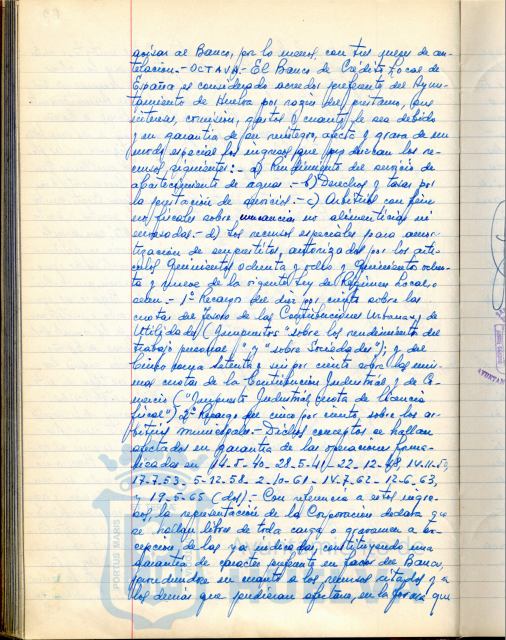 avisar al Banco, por lo menos, con tres meses de an-
telación.- OCTAVA.- El Banco de Crédito Local de
España es considerado acreedor preferente del Ayun-
tamiento de Huelva por razón del préstamo, sus
intereses, comisión, gastos y cuanto le sea debido
y en garantía de su reintegro, afecta y grava de un
modo especial los ingresos que produzcan los re-
cursos siguientes:- a) Rendimiento del servicio de
abastecimiento de aguas.- b) Derechos y tasas por
la prestación de servicios.- c) Arbitrios con fin
no fiscales sobre, consumición no alimenticias ni
envasadas.- d) Los recursos especiales para amor-
tización de empréstitos, autorizados por los artí-
culos Quinientos ochenta y ocho y Quinientos ochen-
ta y nueve de la vigente Ley de Régimen Local, o
sean.- 1º Recargo del diez por ciento sobre las
cuotas del Tesoro de las Contribuciones Urbana y de
Utilidades (Impuestos "sobre los rendimientos del
trabajo personal" y "sobre Sociedades"); y del
cinco por ciento sobre las mis-
mas cuotas de la Contribución Industrial y de Co-
mercio ("Impuesto Industrial, cuota de licencia
fiscal") 2º Recargo del cinco por ciento, sobre los ar-
bitrios municipales.- Dichos conceptos se hallan
afectados en garantía de las operaciones forma-
lizadas en 14-5-40 - 28-5-41 - 22-12-48, 14-11-50,
17-7-53 - 5-12-58 - 2-10-61 - 14-7-62 - 12-6-63,
y 19-5-65 (dos).- Con referencia a estos ingre-
sos, la representación de la Corporación declara que
se hallan libres de toda carga o gravamen a ex-
cepción de las ya indicadas, constituyendo una
garantía de carácter preferente en favor del Banco,
procediéndose en cuanto a los recursos citados y a
los demás que pudieran afectarse, en la forma que
PORTUS MARIS
Ayuntamiento de